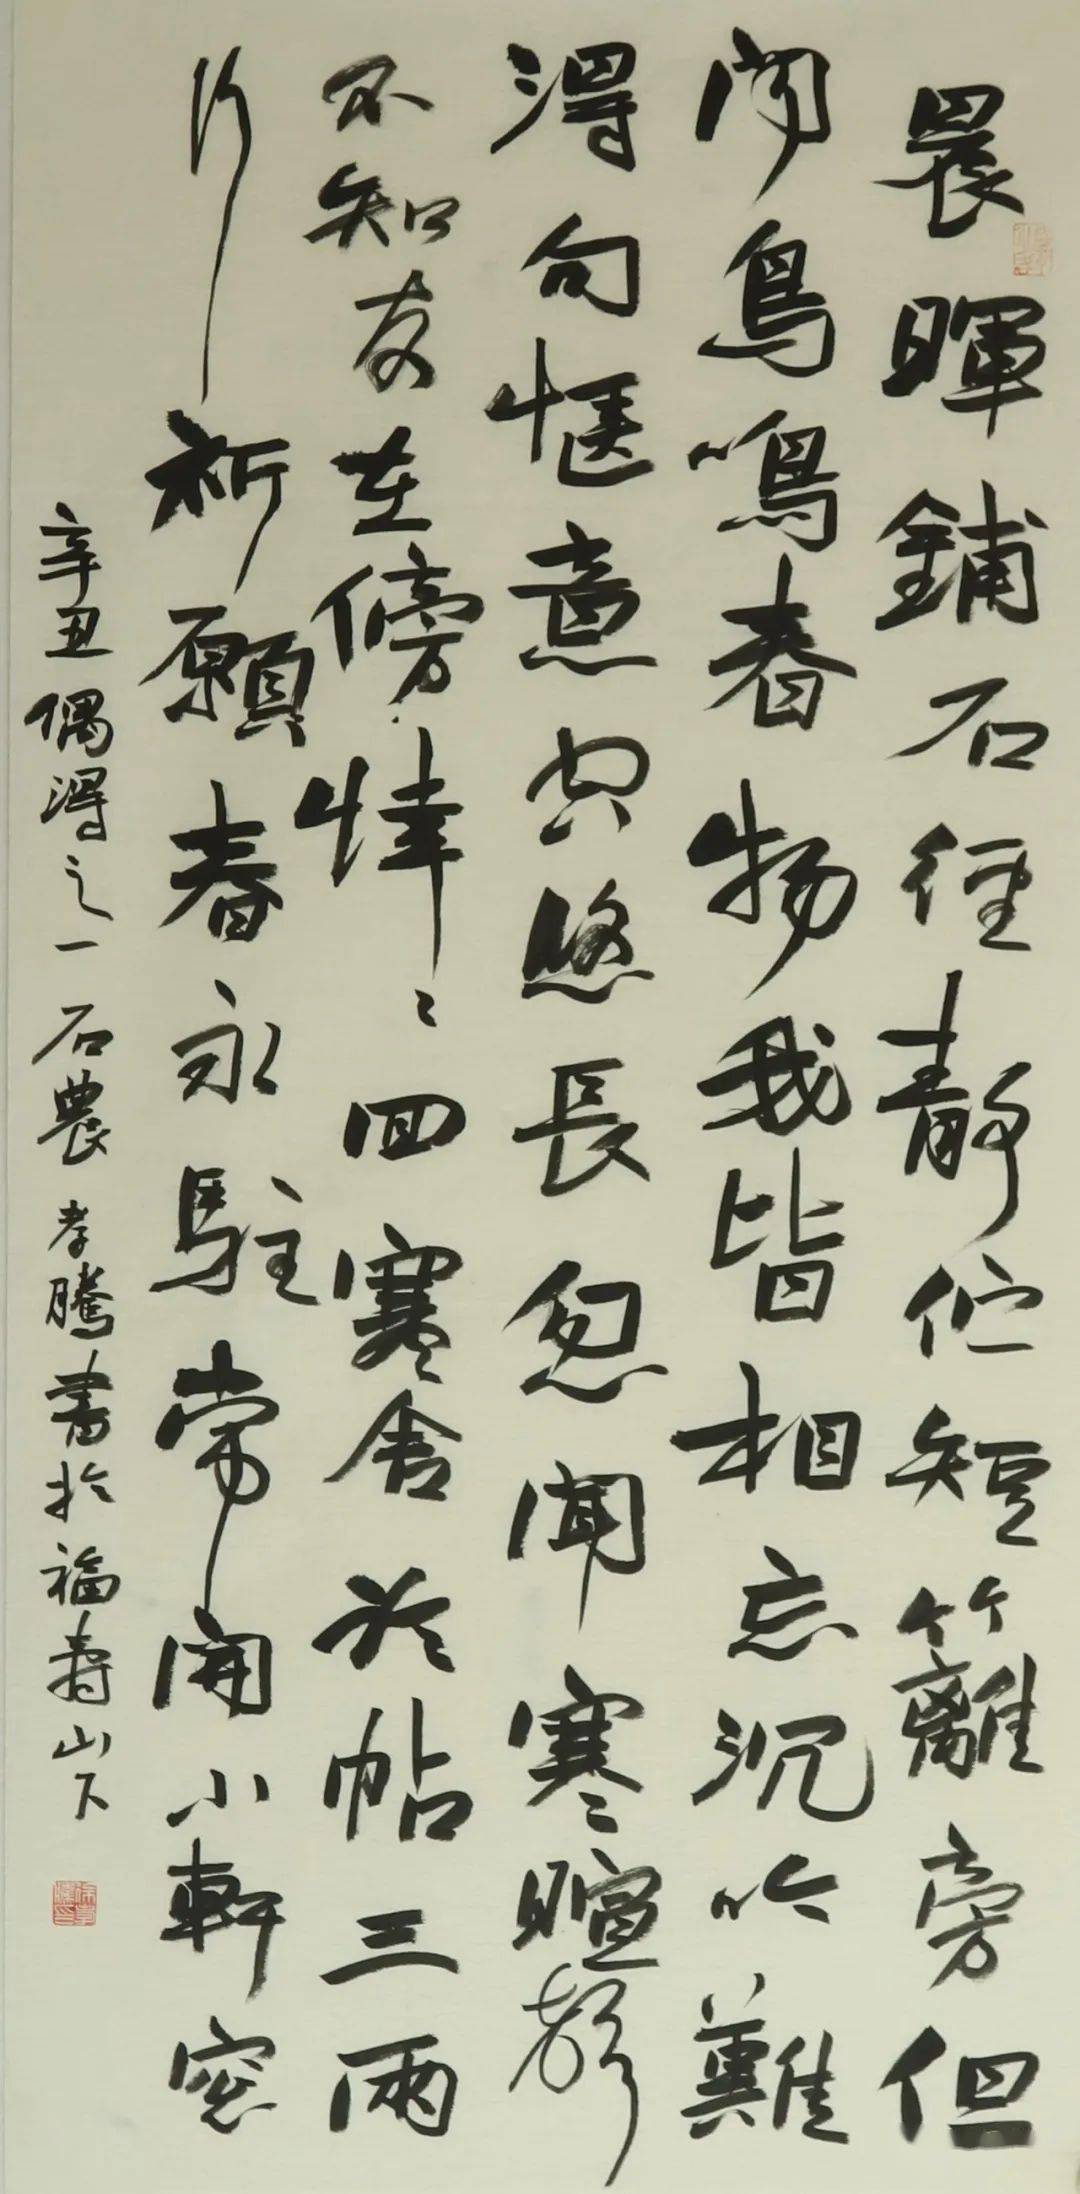 晨暉鋪石徑靜佇短籬旁但
聞鳥鳴春物我皆相忘沉吟難
得句愜意興悠長忽聞寒暄聲
不知友在傍悻〻回寒舍於帖三兩
行祈願春永駐常開小軒窓
辛丑偶得之一石農孝騰書於福壽山下